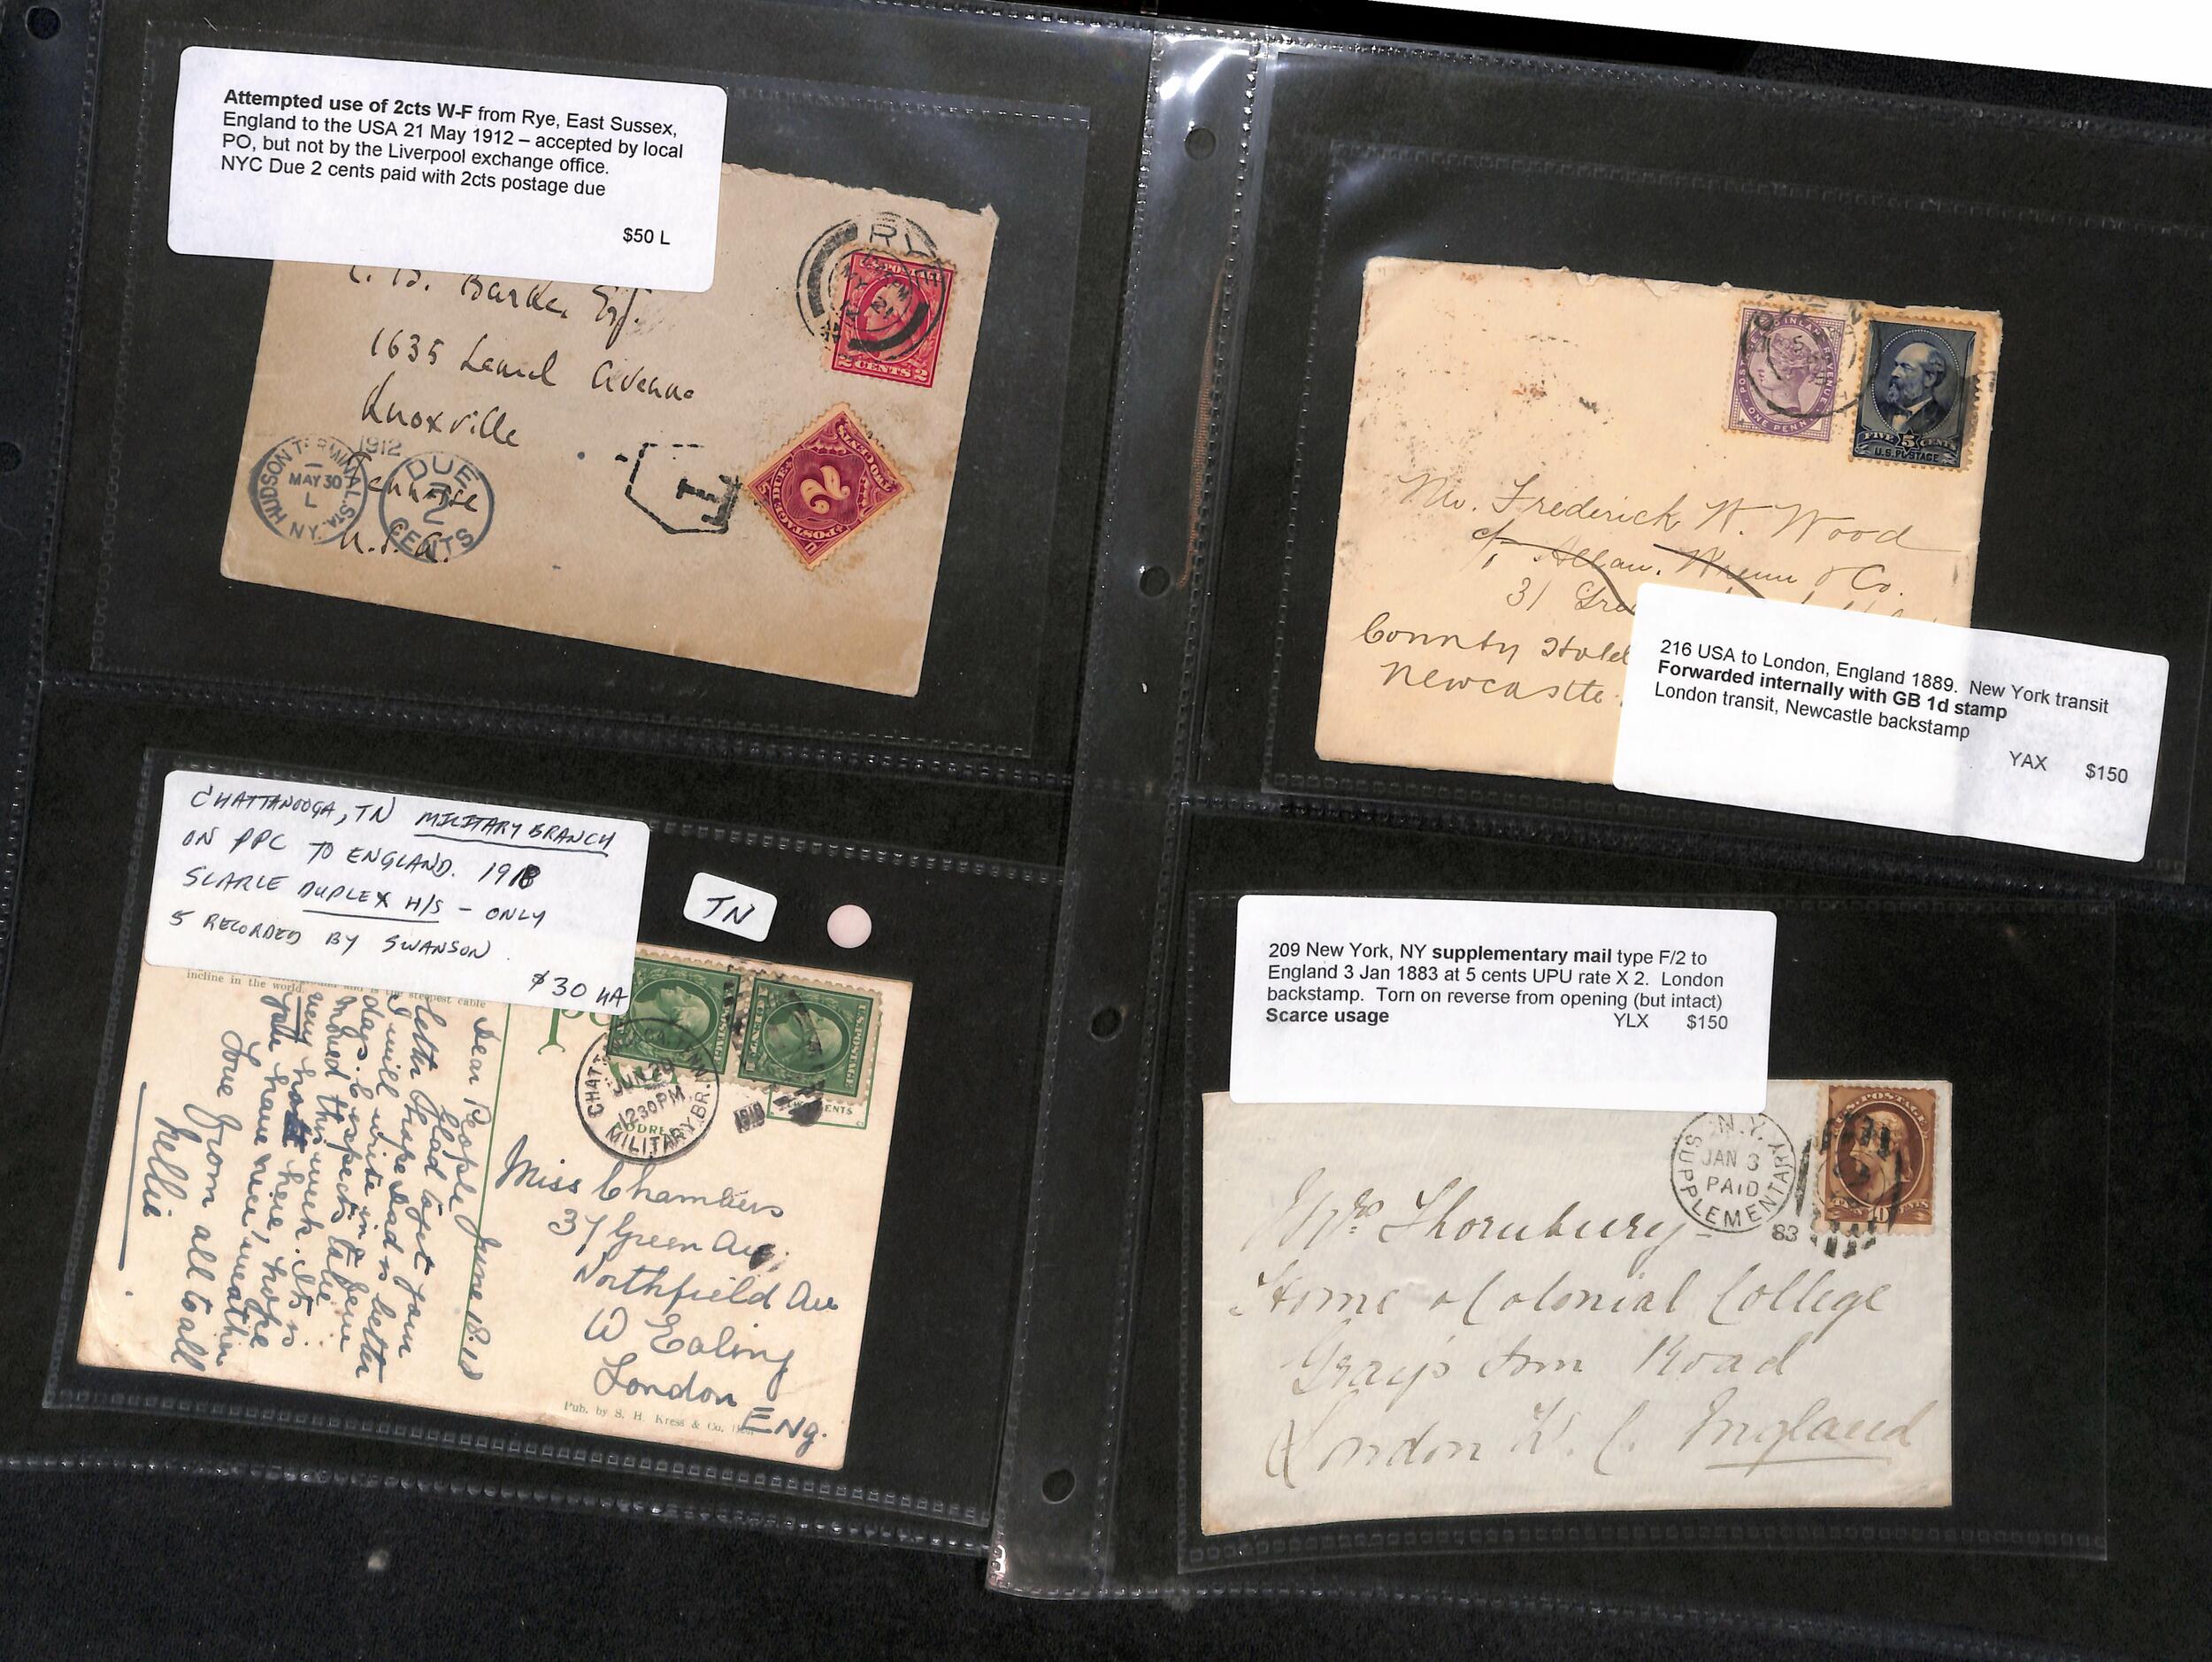 Attempted use of 2cts W-F from Rye, East Sussex,
England to the USA 21 May 1912 – accepted by local
PO, but not by the Liverpool exchange office.
NYC Due 2 cents paid with 2cts postage due
$50 L
RYE
MY 21
12
U.S. POSTAGE
2 CENTS 2
Barke, Esq.
1635 Laurel Avenue
Knoxville
Tennessee
U.S.A.
HUDSON TERMINAL STA.
1912
MAY 30
L
N.Y.
DUE
2
CENTS
T
POSTAGE DUE
2
TWO CENTS
POSTAGE AND INLAND REVENUE
ONE PENNY
FIVE 5 CENTS
U.S. POSTAGE
Mr. Frederick W. Wood
c/o Allan. Wrenn & Co.
31
County Hotel
Newcastle
216 USA to London, England 1889. New York transit
Forwarded internally with GB 1d stamp
London transit, Newcastle backstamp
YAX $150
CHATTANOOGA, TN MILITARY BRANCH
ON PPC TO ENGLAND. 1918
SCARCE DUPLEX H/S – ONLY
5 RECORDED BY SWANSON.
$30 HA
TN
steepest cable
incline in the world.
U.S. POSTAGE
CHATTANOOGA, TENN.
JUN 20
12 30 PM
MILITARY BR.
1918
June 18. 18
Dear People
Glad to get your
letter hope Dad is better
I will write in
days. expects to be
moved this week. Its
very hot here, hope
you have nice weather
Love from all to all
Nellie
Miss Chambers
37 Green Ave
Northfield Ave
W Ealing
London
ENG.
Pub. by S. H. Kress & Co.
209 New York, NY supplementary mail type F/2 to
England 3 Jan 1883 at 5 cents UPU rate X 2. London
backstamp. Torn on reverse from opening (but intact)
Scarce usage YLX $150
N.Y.
JAN 3
PAID
SUPPLEMENTARY
83
U.S. POSTAGE
10
Mrs Thornbury
Home & Colonial College
Gray's Inn Road
London W. C. England